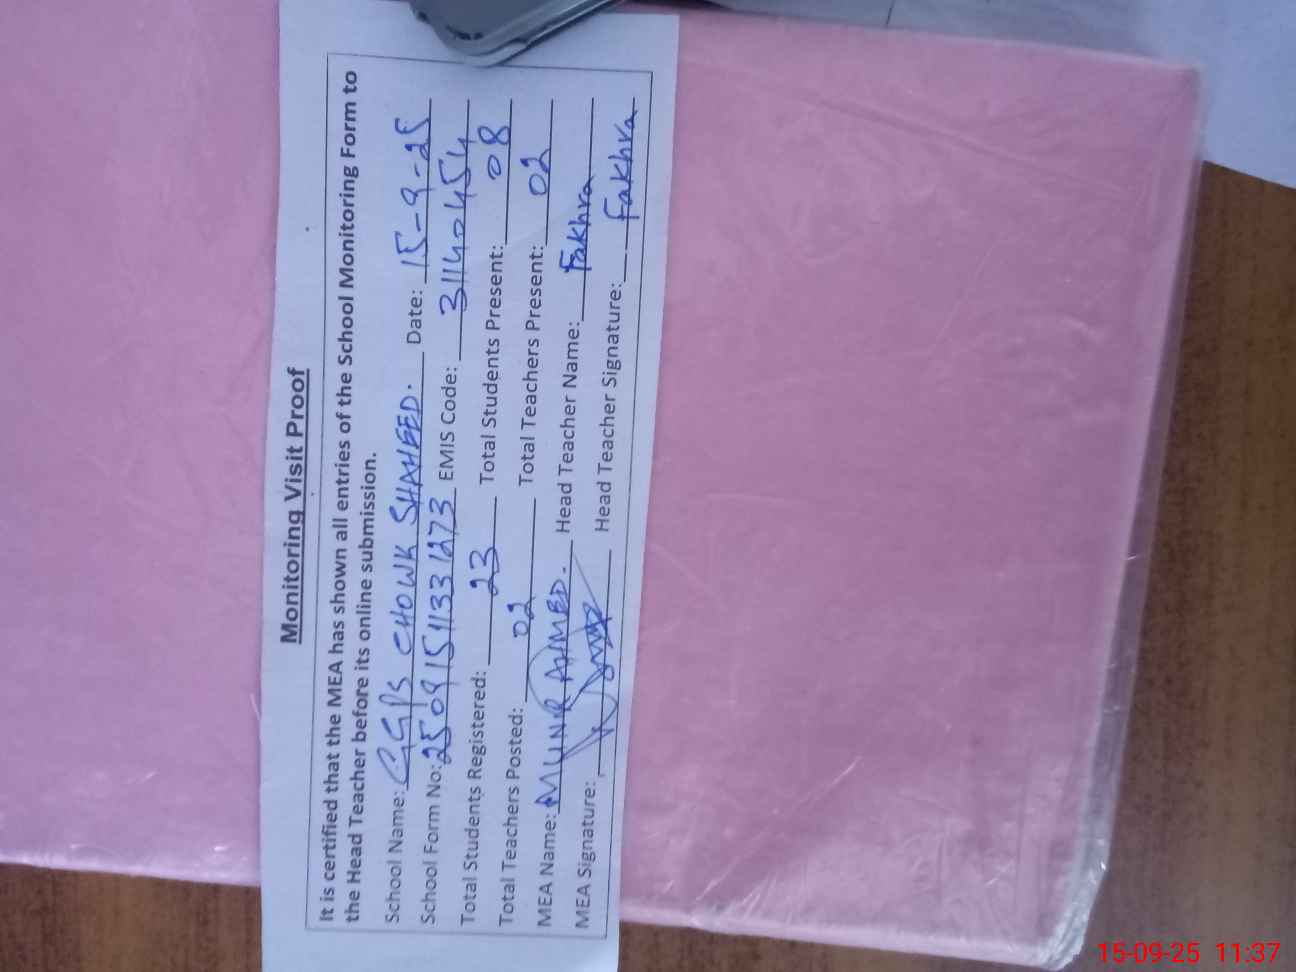 Monitoring Visit Proof
It is certified that the MEA has shown all entries of the School Monitoring Form to
the Head Teacher before its online submission.
School Name: GGPS CHOWK SHAHEED. Date: 15-9-25
School Form No: 25091511331273 EMIS Code: 31140454
Total Students Registered: 23 Total Students Present: 08
Total Teachers Posted: 02 Total Teachers Present: 02
MEA Name: MUNIR AHMED. Head Teacher Name: Fakhra
MEA Signature: Head Teacher Signature: Fakhra
15-09-25 11:37